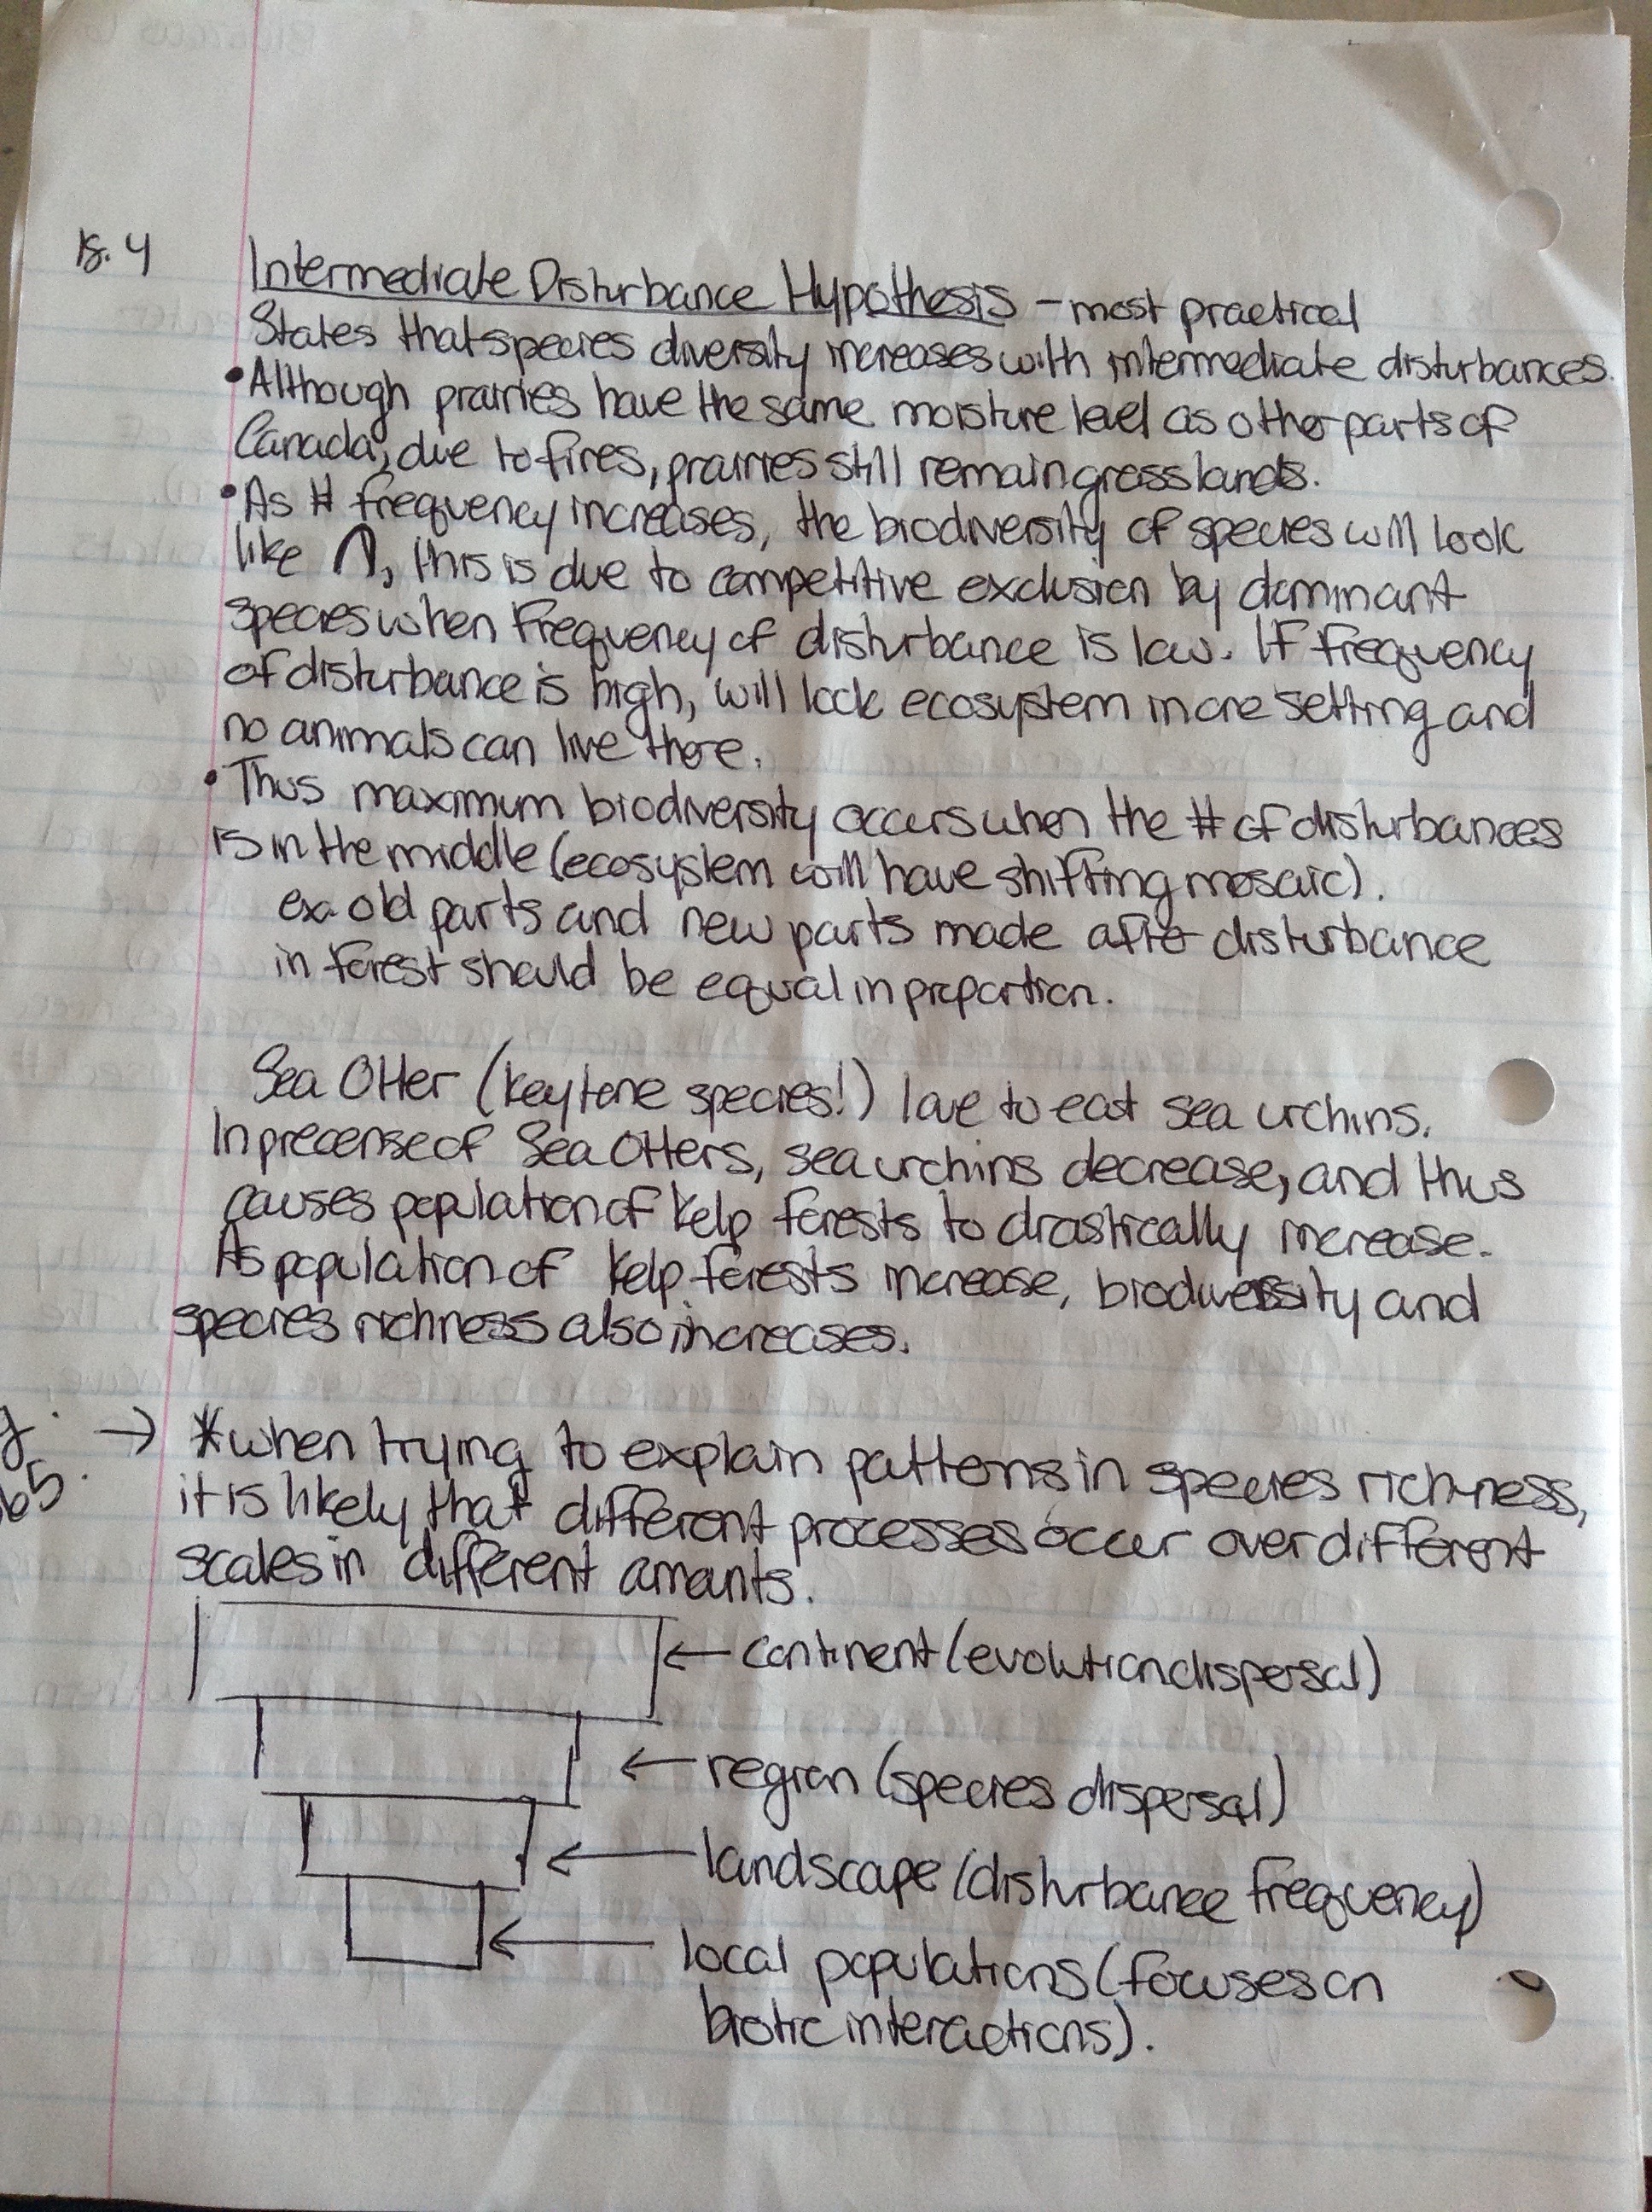 18.4
Intermediate Disturbance Hypothesis - most practical
States that species diversity increases with intermediate disturbances.
• Although prairies have the same moisture level as other parts of
Canada, due to fires, prairies still remain grasslands.
• As # frequency increases, the biodiversity of species will look
like ∩, this is due to competitive exclusion by dominant
species when frequency of disturbance is low. If frequency
of disturbance is high, will lock ecosystem in one setting and
no animals can live there.
• Thus maximum biodiversity occurs when the # of disturbances
is in the middle (ecosystem will have shifting mosaic).
ex. old parts and new parts made after disturbance
in forest should be equal in proportion.
Sea Otter (keytone species!) love to eat sea urchins.
In precense of Sea Otters, sea urchins decrease, and thus
causes population of kelp forests to drastically increase.
As population of kelp forests increase, biodiversity and
species richness also increases.
→ *when trying to explain patterns in species richness,
it is likely that different processes occur over different
scales in different amounts.
← continent (evolution dispersal)
← region (species dispersal)
← landscape (disturbance frequency)
← local populations (focuses on
biotic interactions).